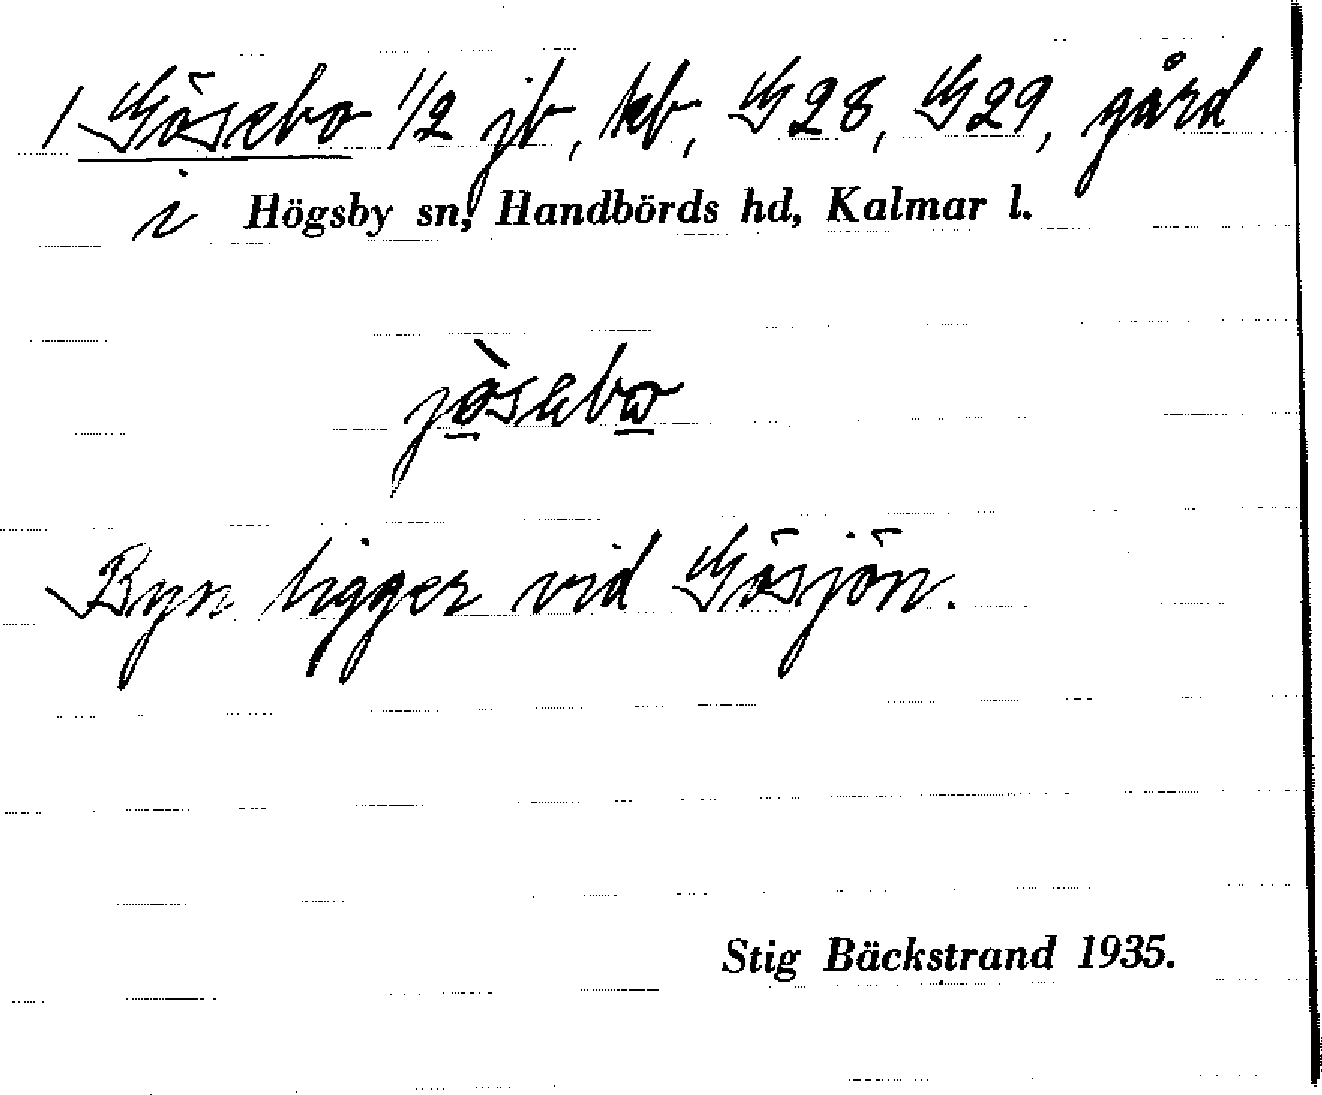 1 Gösebo 1/2 jb, kb, G28, G29, gård
i Högsby sn, Handbörds hd, Kalmar l.
Byn ligger vid Gösjön.
Stig Bäckstrand 1935.